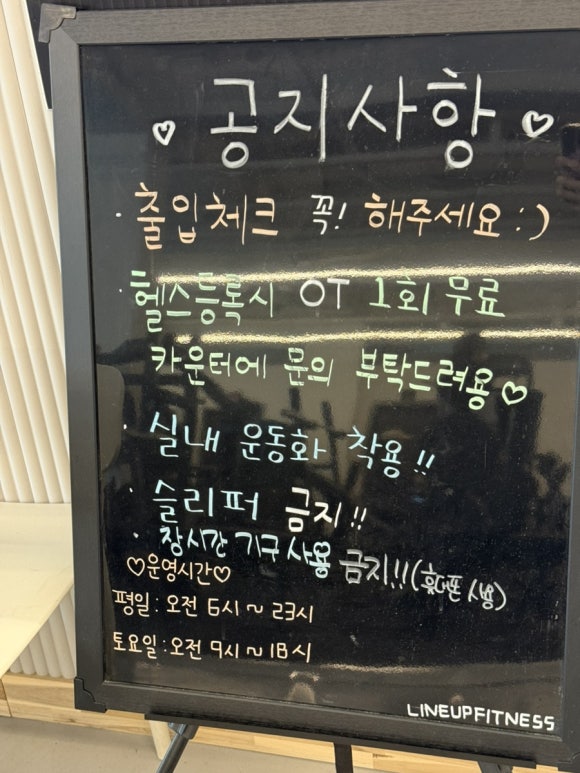 ♡ 공지사항 ♡
· 출입체크 꼭! 해주세요 :)
· 헬스등록시 OT 1회 무료
카운터에 문의 부탁드려용♡
· 실내 운동화 착용!!
· 슬리퍼 금지!!
· 장시간 기구 사용 금지!!(휴대폰 사용)
♡운영시간♡
평일 : 오전 6시 ~ 23시
토요일 : 오전 9시 ~ 18시
LINEUPFITNESS